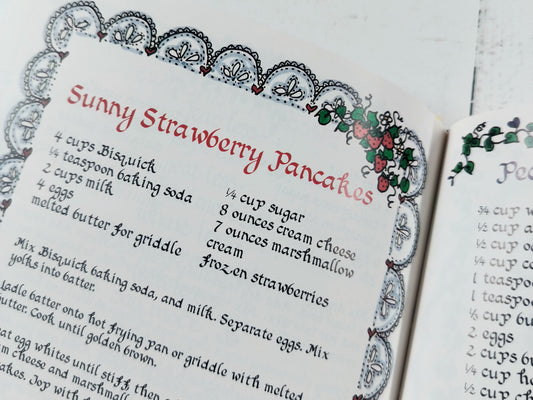 Sunny Strawberry Pancakes
4 cups Bisquick
¼ teaspoon baking soda
2 cups milk
4 eggs
melted butter for griddle
¼ cup sugar
8 ounces cream cheese
7 ounces marshmallow
cream
frozen strawberries
Mix Bisquick baking soda, and milk. Separate eggs. Mix
yolks into batter.
Ladle batter onto hot frying pan or griddle with melted
butter. Cook until golden brown.
egg whites until stiff, then
cheese and marshmall
Joy with
Pec
¾ cup
½ cup
½ cup
¼ cup
1 teaspoo
1 teaspo
⅓ cup bu
2 eggs
2 cups
¼ cup
½ cup